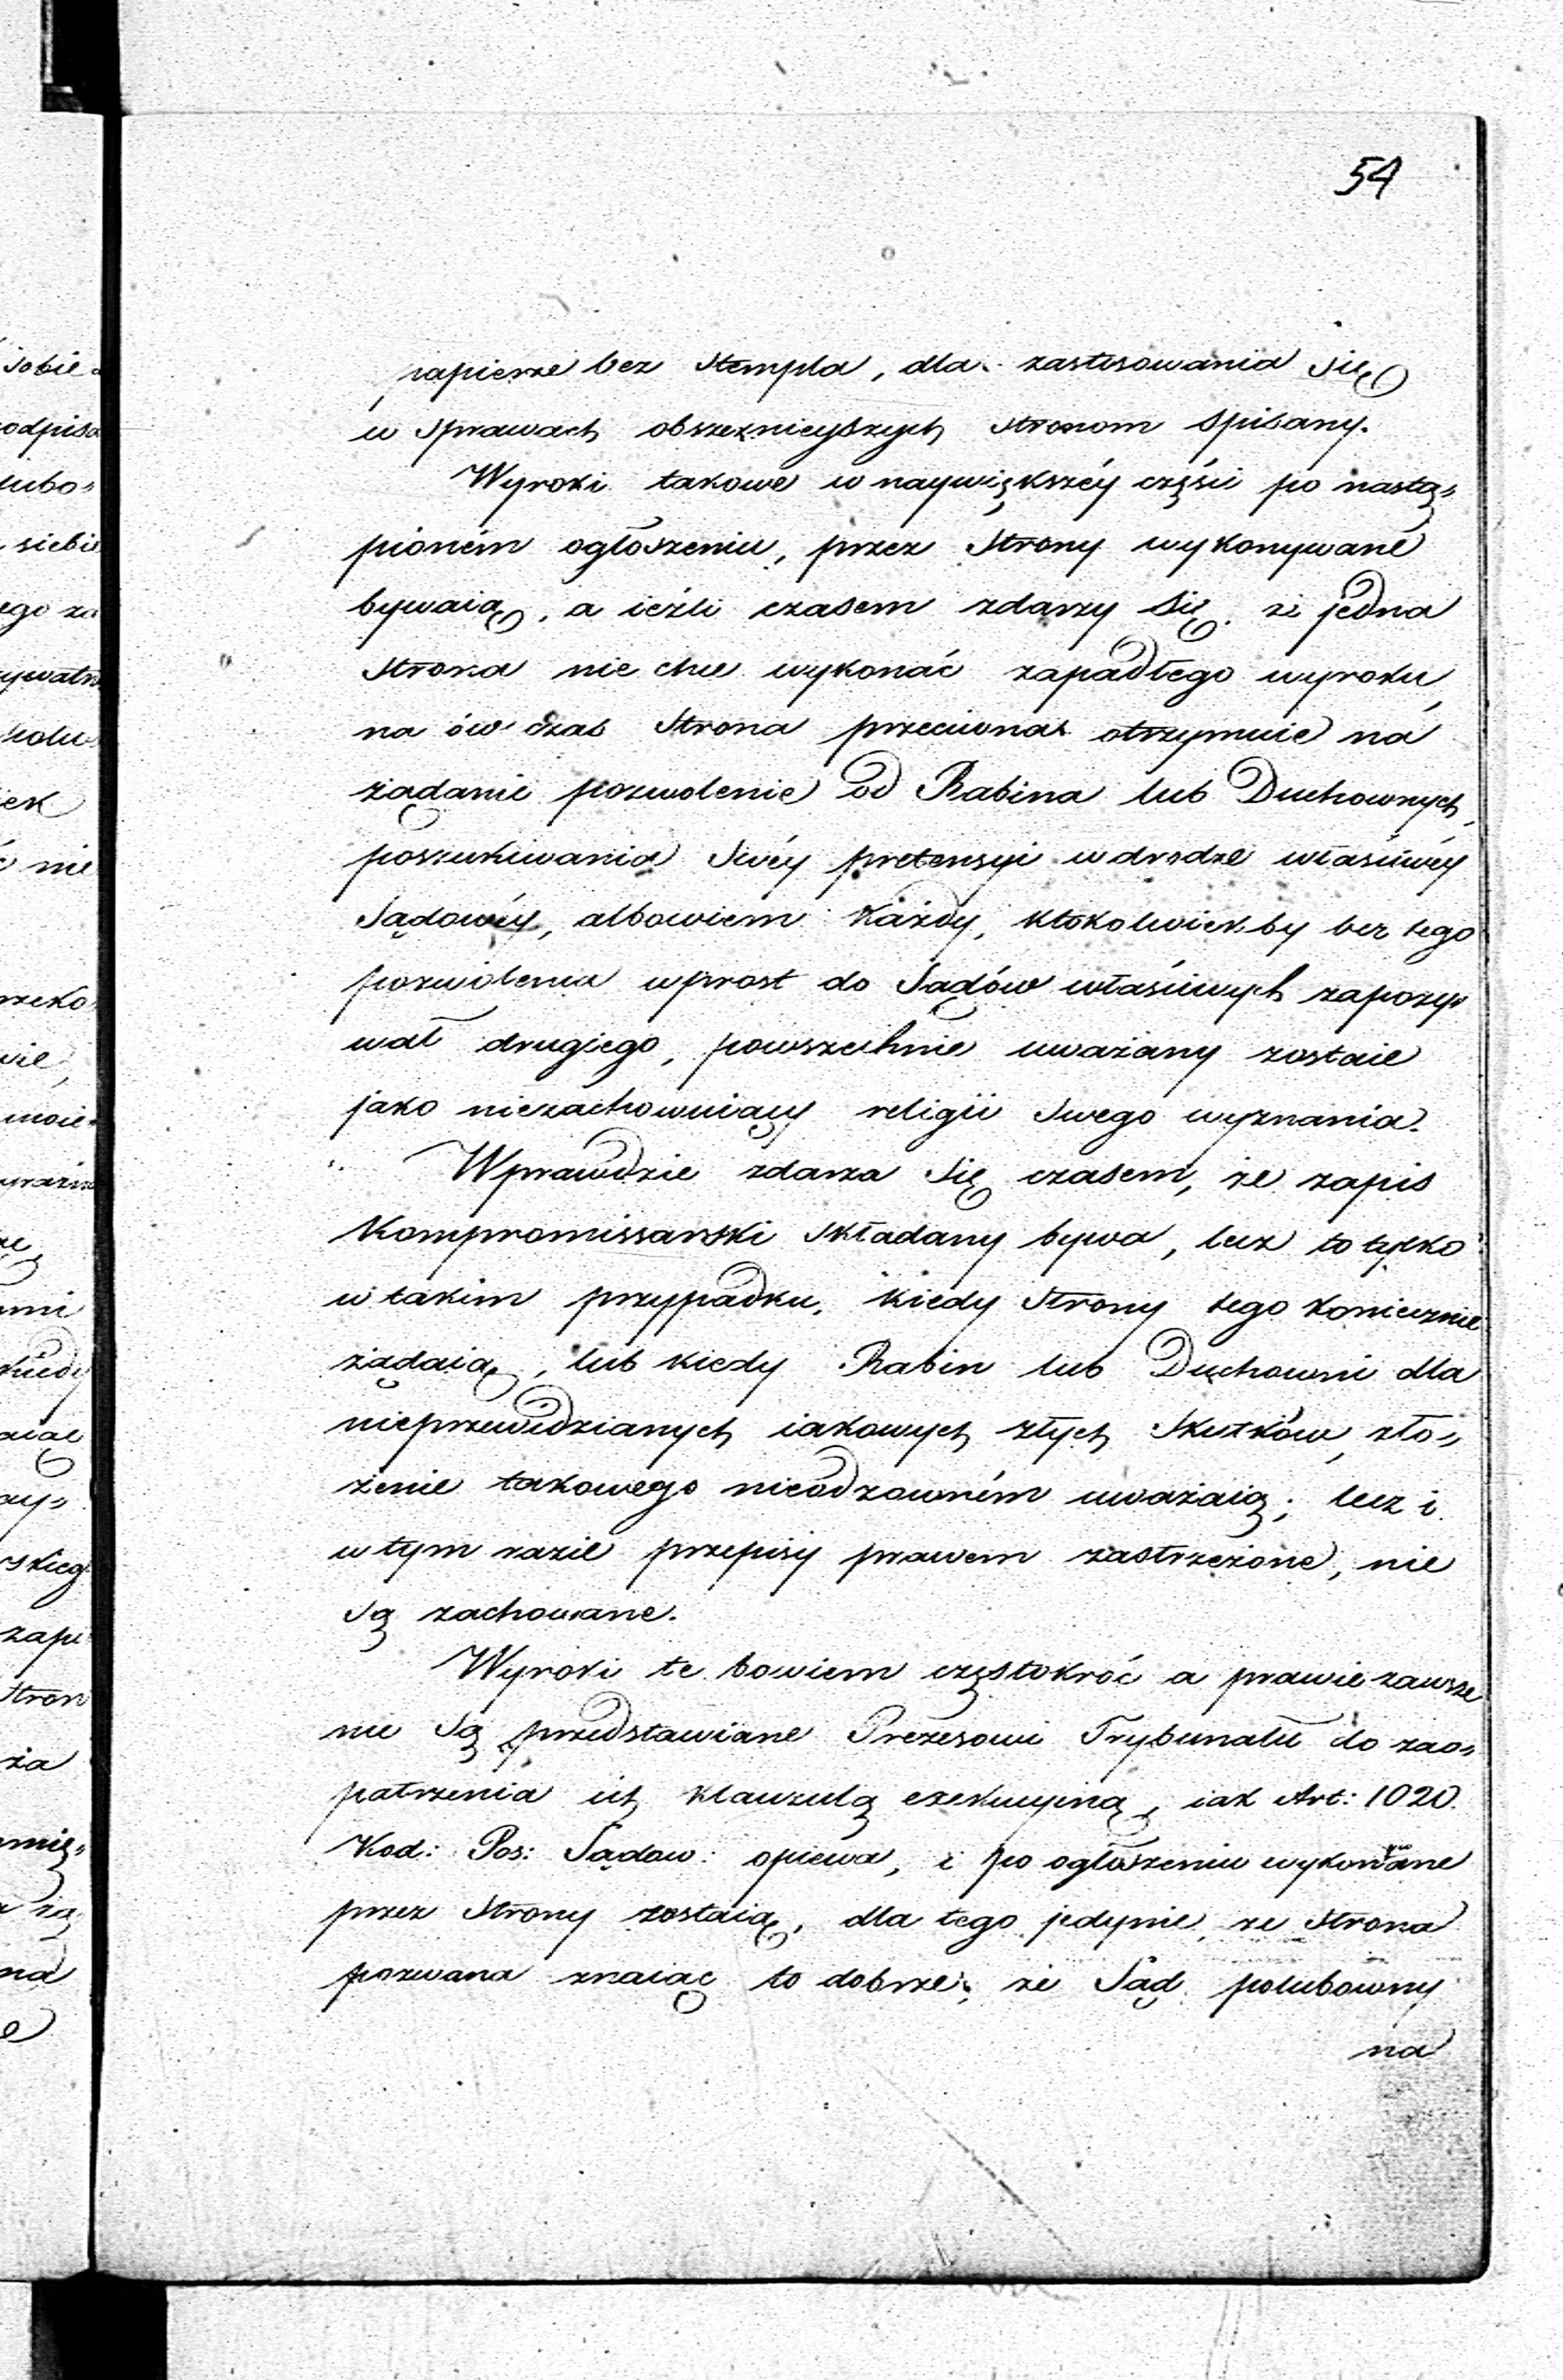 54
papierze bez stempla, dla zastosowania się
w sprawach obszernieyszych stronom spisany.
Wyroki takowe w naywiększéy części po nastą„
pioném ogłoszeniu, przez Strony wykonywane
bywaią, a ieźli czasem zdarzy się, że jedna
Strona nie chce wykonać zapadłego wyroku,
na ów czas Strona przeciwna otrzymuie na
żądanie pozwolenie od Rabina lub Duchownych,
poszukiwania Swéy pretensyi w drodze właściwéy
Sądowéy, albowiem każdy, ktokolwiek by bez tego
pozwolenia wprost do Sądów właściwych zapozy„
wał drugiego, powszechnie uważany zostaie
jako niezachowuiący religii Swego wyznania.
Wprawdzie zdarza Się czasem, że zapis
Kompromissarski składany bywa, lecz to tylko
w takim przypadku, kiedy Strony tego koniecznie
żądaią, lub kiedy Rabin lub Duchowni dla
nieprzewidzianych iakowych złych Skutków, zło„
żenie takowego nieodzowném uważaią; lecz i
w tym razie przepisy prawem zastrzeżone, nie
są zachowane.
Wyroki te bowiem częstokroć a prawie zawsze
nie Są przedstawiane Prezesowi Trybunału do zao„
patrzenia ich klauzulą exekucyiną, iak Art: 1020.
Kod: Pos: Sądow: opiewa, i po ogłoszeniu wykonane
przez Strony zostaią, dla tego jedynie, że Strona
pozwana znaiąc to dobrze, że Sąd polubowny
na